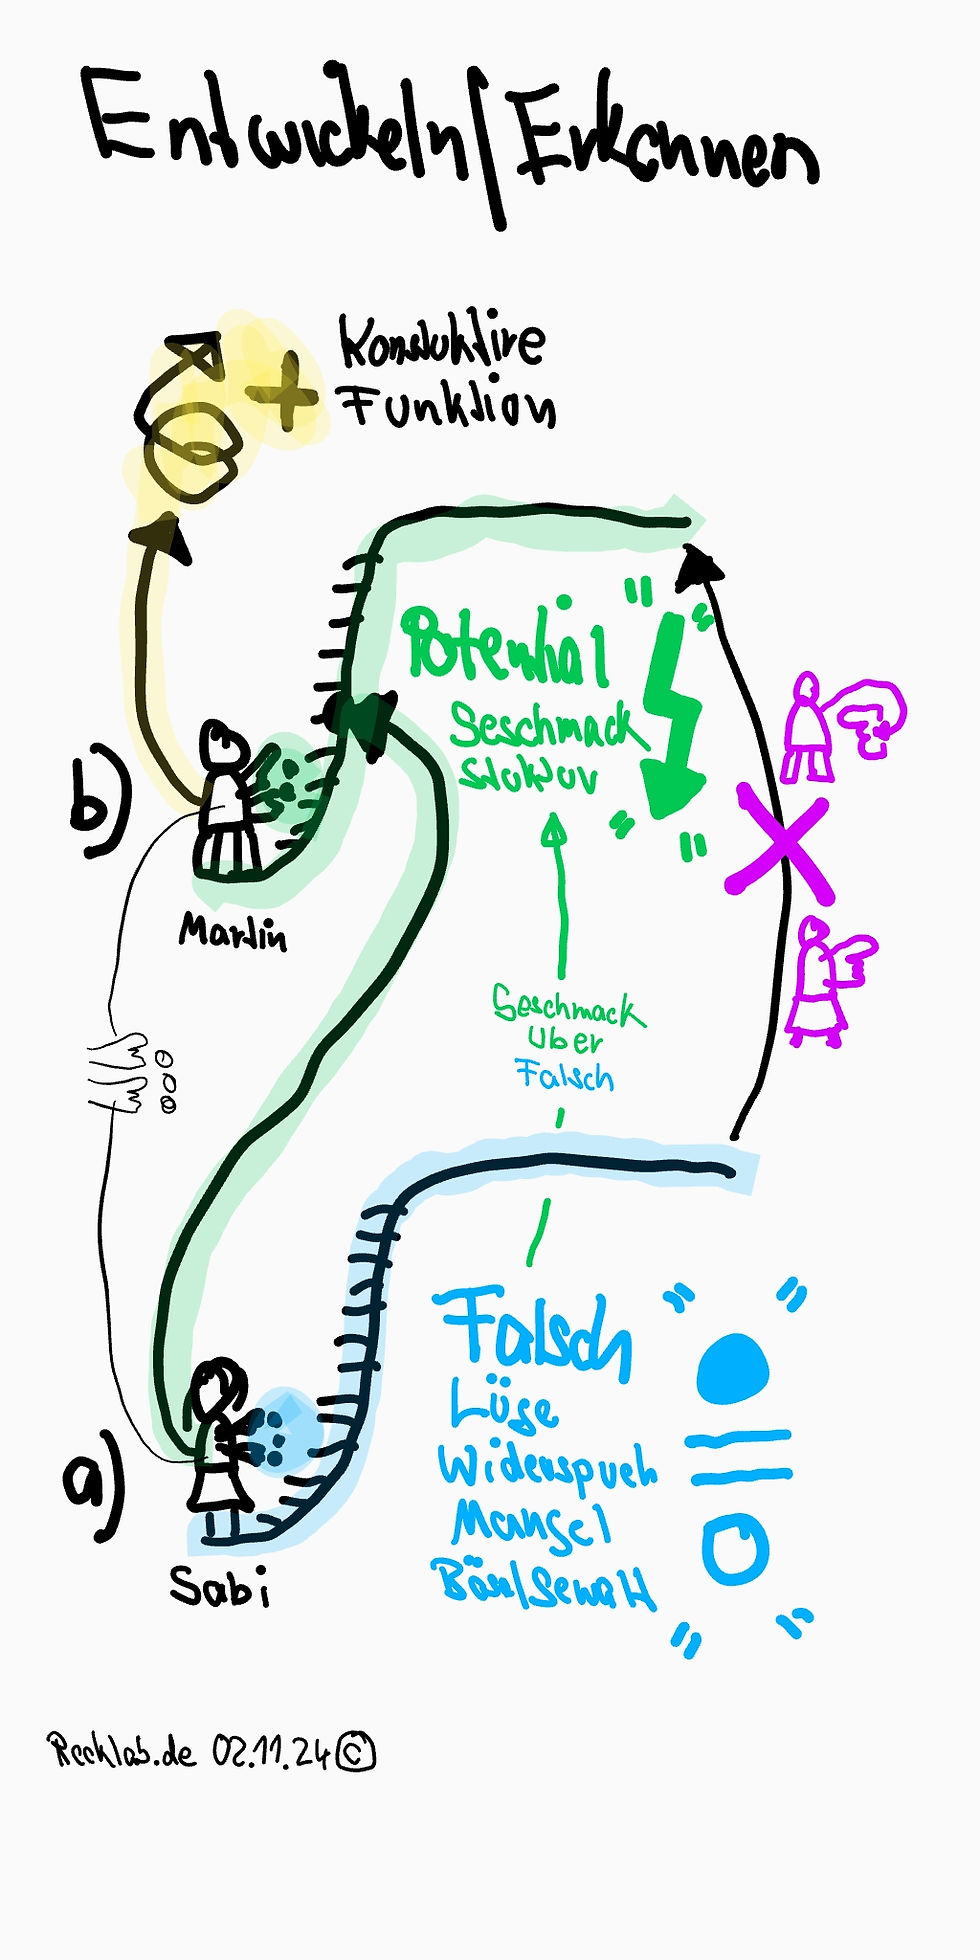 Entwickeln/Erkennen
Konstuktive
Funktion
Potential
Geschmack
b)
Martin
Geschmack
über
Falsch
Falsch
Lüge
Widerspuch
Mangel
a)
Böse/Gewalt
Sabi
Recklab.de 02.11.24 ©